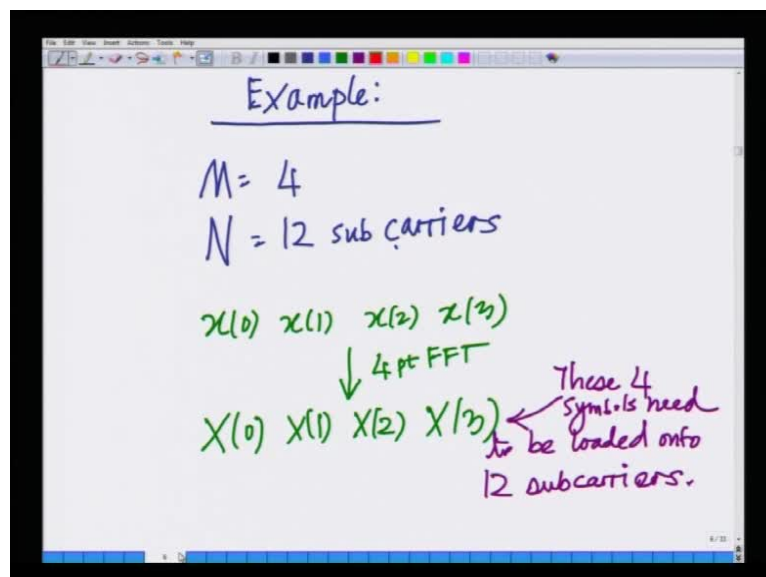 File Edit View Insert Actions Tools Help
Example:
M = 4
N = 12 sub carriers
x(0) x(1) x(2) x(3)
4 pt FFT
X(0) X(1) X(2) X(3)
These 4
symbols need
to be loaded onto
12 subcarriers.